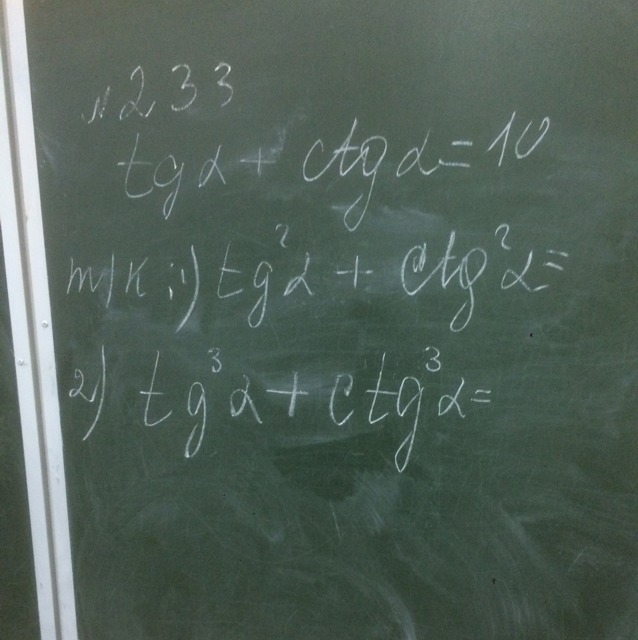 №233
tgα + ctgα = 10
m/k: 1) tg²α + ctg²α =
2) tg³α + ctg³α =